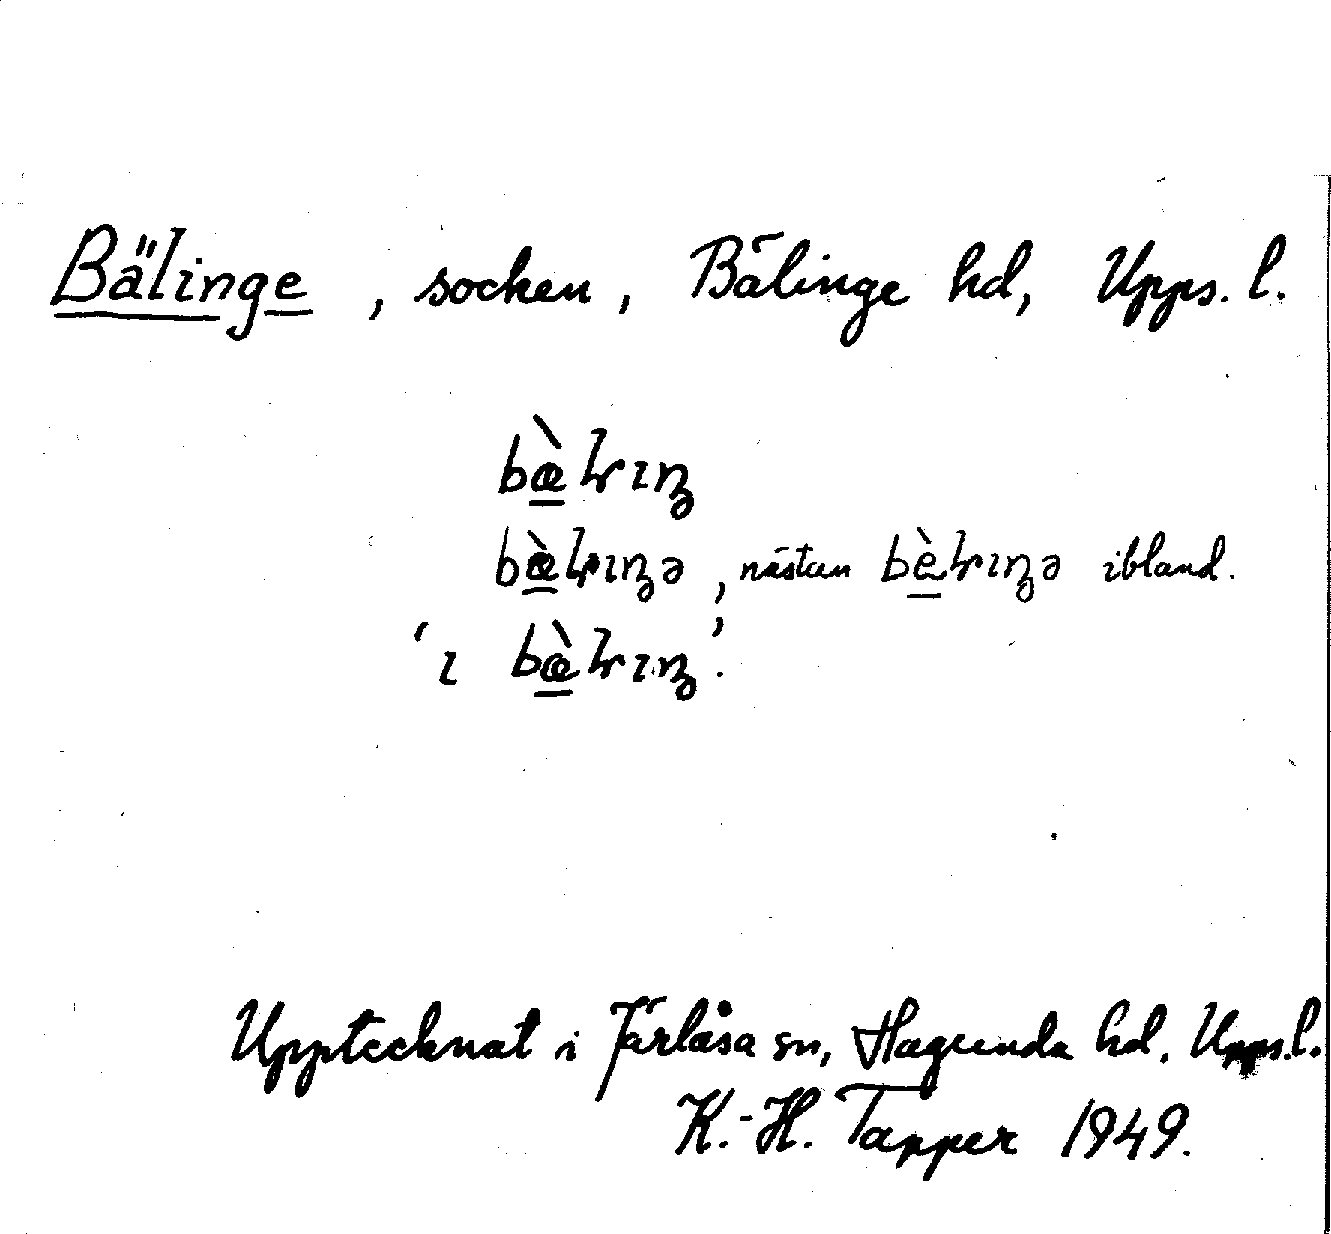 Bälinge, socken, Bälinge hd, Upps. l.
bæ̱̀lrıŋ
bæ̱̀lrıŋə, nästan bè̱lrıŋə ibland.
‘ı bæ̱̀lrıŋ’.
Upptecknat i Järlåsa sn, Hagunda hd, Upps. l.
K.-H. Tapper 1949.